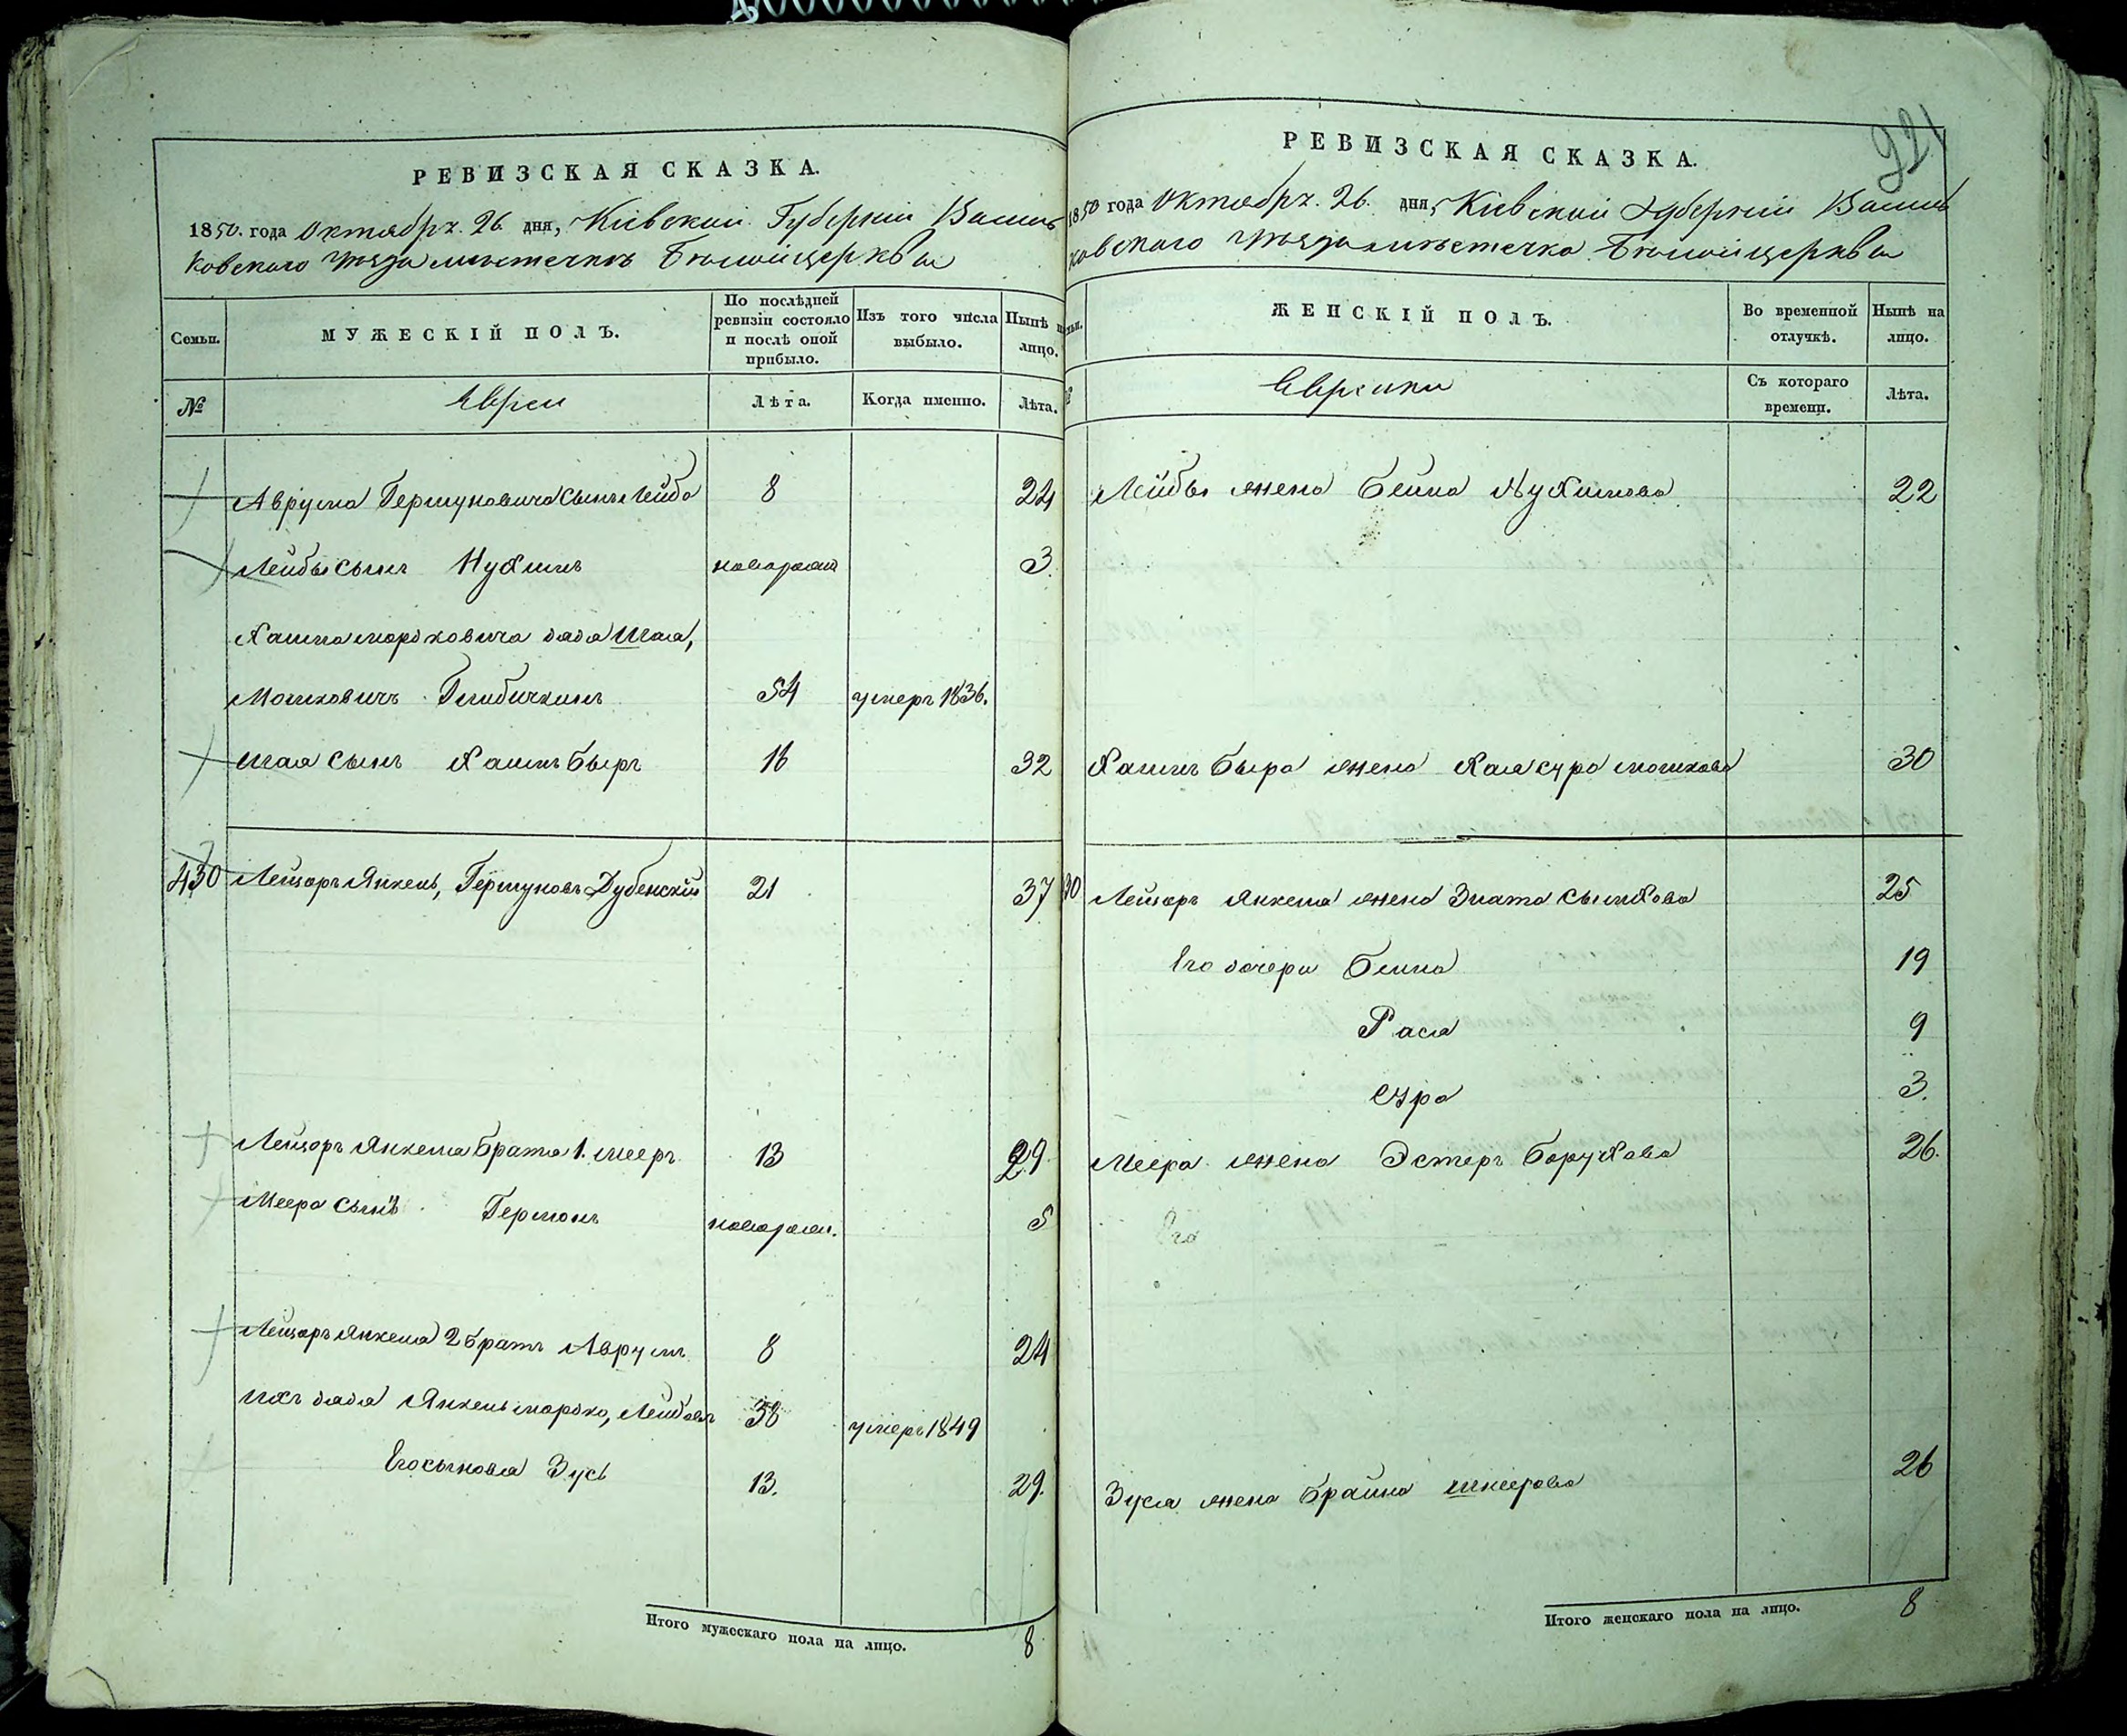 РЕВИЗСКАЯ СКАЗКА.
1850. года Октября. 26. дня, Кіевской Губерніи Василь
ковского уѣзда местечкѣ Бѣлойцеркви
Семьи.
МУЖЕСКІЙ ПОЛЪ.
По послѣдней ревизіи состояло и послѣ оной прибыло.
Изъ того числа выбыло.
Нынѣ на лицо.
№
Евреи
Лѣта.
Когда именно.
Лѣта.
Аврума Гершуновича сынъ Лейба 8 24
Лейбы сынъ Нухимъ новорож 3
Хаима мордковича дядя Шая,
Мошковичъ 54 умеръ 1836.
Шая сынъ Хаимъ Беръ 16 32
430 Лейзоръ Янкель, Гершуновъ Дубенскій 21 37
Лейзоръ Янкеля брата 1. Мееръ 13 29
Меера сынъ Гершонъ новорож. 5
Лейзоръ Янкеля 2 братъ Аврумъ 8 24
Ихъ дядя Янкель мордко, Лейбовъ 38 умеръ 1849
Его сыновья Зусь 13. 29.
Итого мужескаго пола на лицо. 8
221
РЕВИЗСКАЯ СКАЗКА.
1850 года Октября. 26. дня, Кіевской Губерніи Василь
ковского уѣзда местечка Бѣлойцеркви
ЖЕНСКІЙ ПОЛЪ.
Во временной отлучкѣ.
Нынѣ на лицо.
Еврейки
Съ котораго времени.
Лѣта.
Лейбы жена Бейла Нухимова 22
Хаимъ Бера жена Хая сура мошкова 30
30 Лейзоръ Янкеля жена Злата 25
Его дочери Бейла 19
Рася 9
Сура 3.
Меера жена Эстеръ Борухова 26.
Его
Зуся жена Брайна 26
Итого женскаго пола на лицо. 8